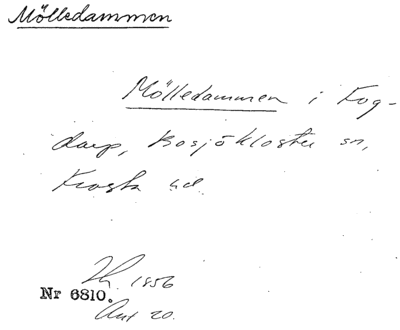 Mölledammen
Mölledammen i Fog-
darp, Bosjökloster sn,
Frosta hd.
1856
Nr 6810.
20.